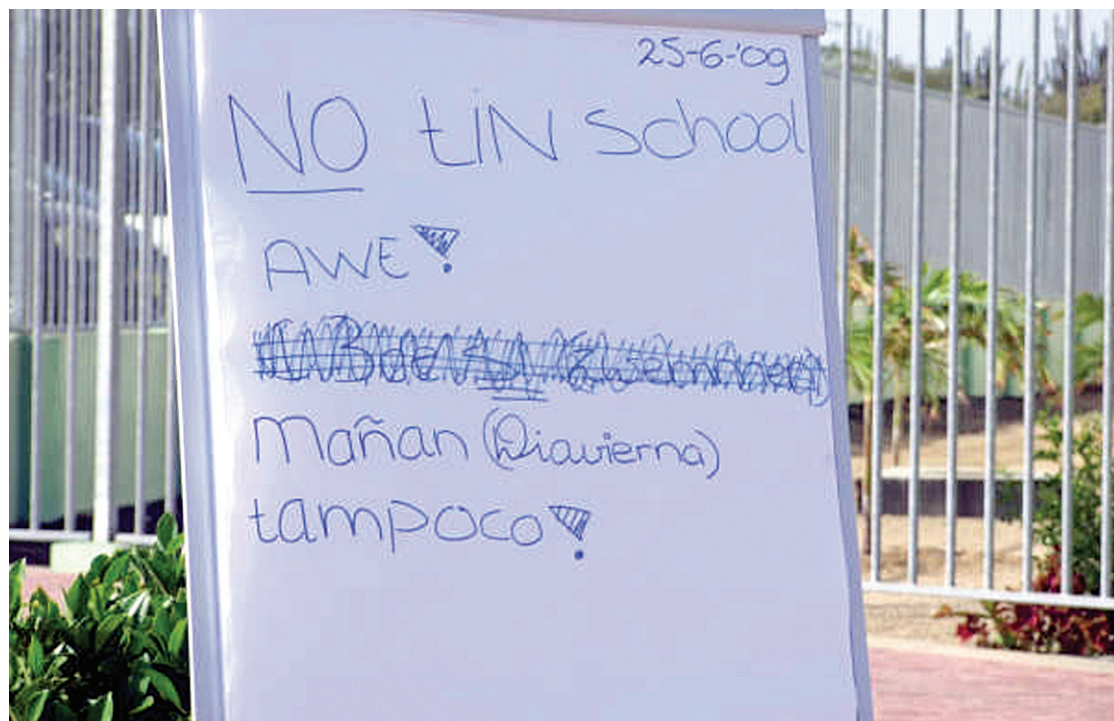 25-6-'09
NO tiN school
AWE!
Mañan (Diavierna)
tampoco!